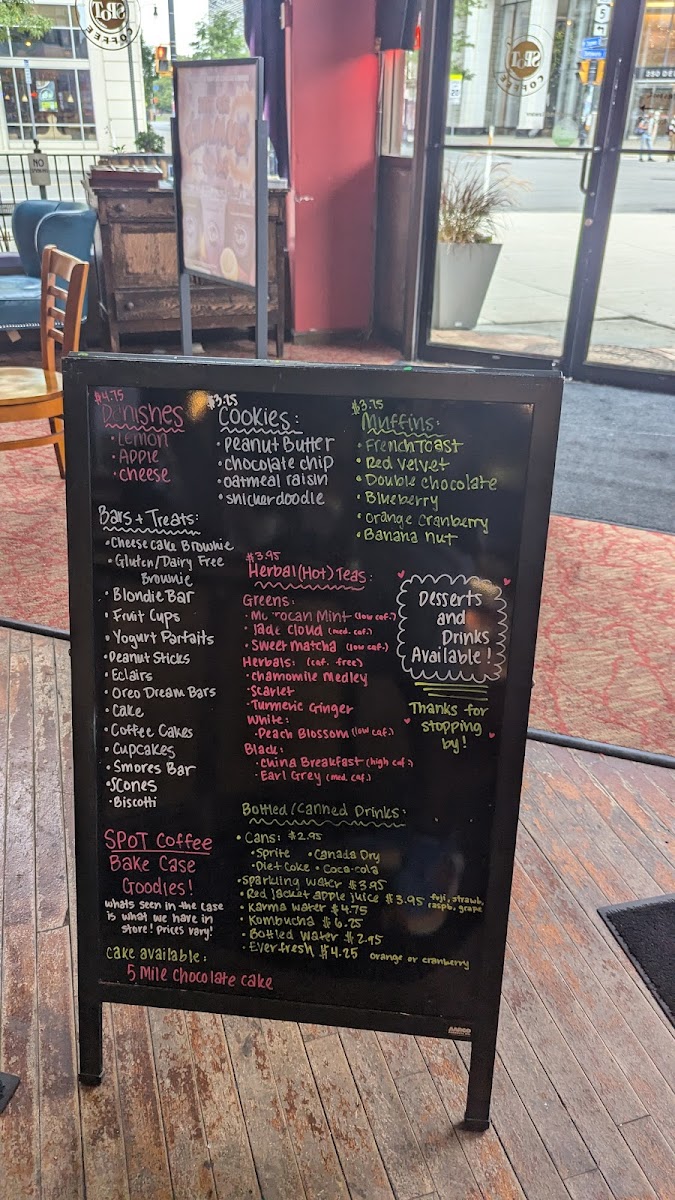 SPoT
COFFEE
SPoT
COFFEE
NO
5
250 DE
$4.75
Danishes
• Lemon
• Apple
• cheese
$3.75
Cookies:
• Peanut Butter
• chocolate chip
• oatmeal raisin
• snickerdoodle
$3.75
Muffins:
• French Toast
• Red velvet
• Double chocolate
• Blueberry
• orange cranberry
• Banana nut
Bars + Treats:
• Cheesecake Brownie
• Gluten/Dairy Free
Brownie
• Blondie Bar
• Fruit Cups
• Yogurt Parfaits
• Peanut Sticks
• Eclairs
• Oreo Dream Bars
• Cake
• Coffee Cakes
• Cupcakes
• Smores Bar
• Scones
• Biscotti
$3.95
Herbal (Hot) Teas:
Greens:
• Moroccan Mint (low caf.)
• Jade Cloud (med. caf.)
• Sweet Matcha (low caf.)
Herbals: (caf. free)
• chamomile Medley
• Scarlet
• Turmeric Ginger
White:
• Peach Blossom (low caf.)
Black:
• China Breakfast (high caf.)
• Earl Grey (med. caf.)
Desserts
and
Drinks
Available!
Thanks for
stopping
by!
SPoT Coffee
Bake Case
Goodies!
whats seen in the case
is what we have in
store! prices vary!
cake available:
5 Mile chocolate cake
Bottled/Canned Drinks:
• Cans: $2.95
• Sprite • Canada Dry
• Diet Coke • Coca-cola
• Sparkling water $3.95
• Red Jacket apple juice $3.95 fuji, strawb, raspb, grape
• Karma water $4.75
• Kombucha $6.25
• Bottled Water $2.95
• Everfresh $4.25 orange or cranberry
AARCO